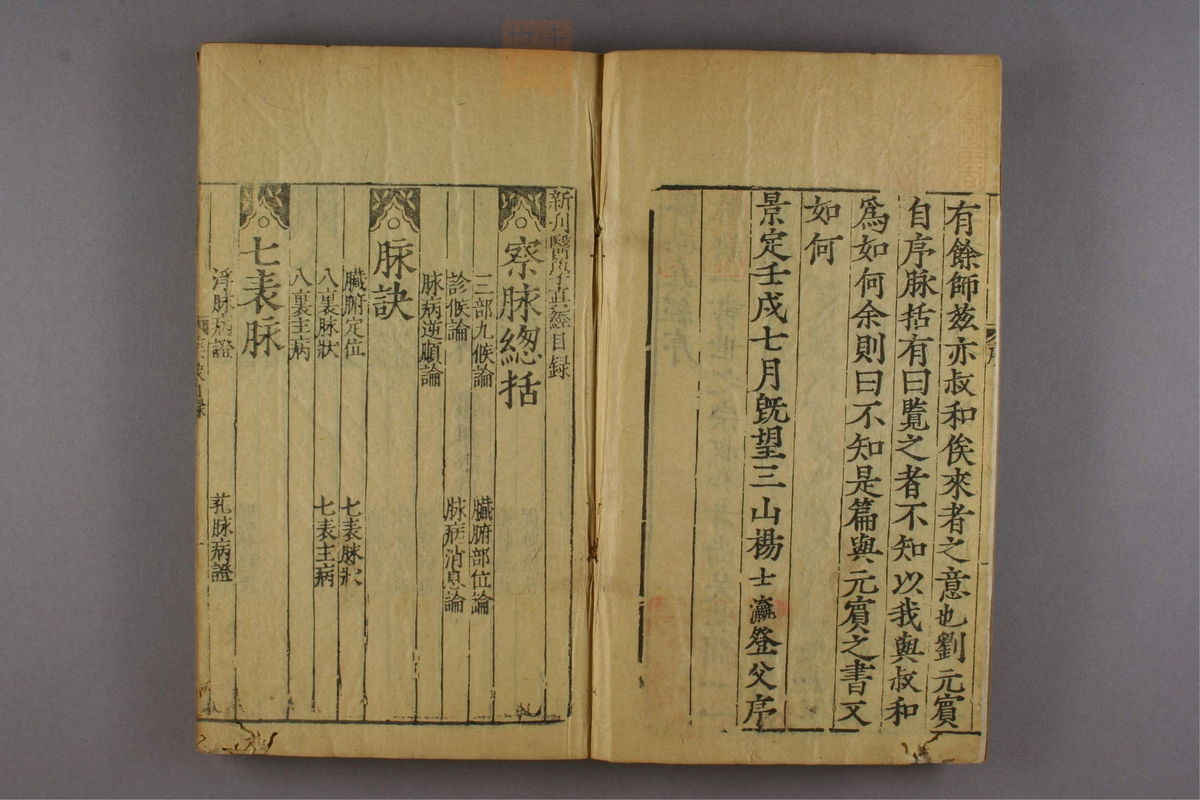 有餘師茲亦叔和俟來者之意也劉元賔
自序脉括有曰覧之者不知以我與叔和
爲如何余則曰不知是篇與元賔之書又
如何
景定壬戌七月旣望三山楊士瀛登父序
新刋醫學眞經目録
察脉總括
三部九候論 臟腑部位論
診候論 脉病消息論
脉病逆順論
脉訣
臟腑定位 七表脉狀
八裏脉狀 七表主病
八裏主病
七表脉
浮脉病證 芤脉病證